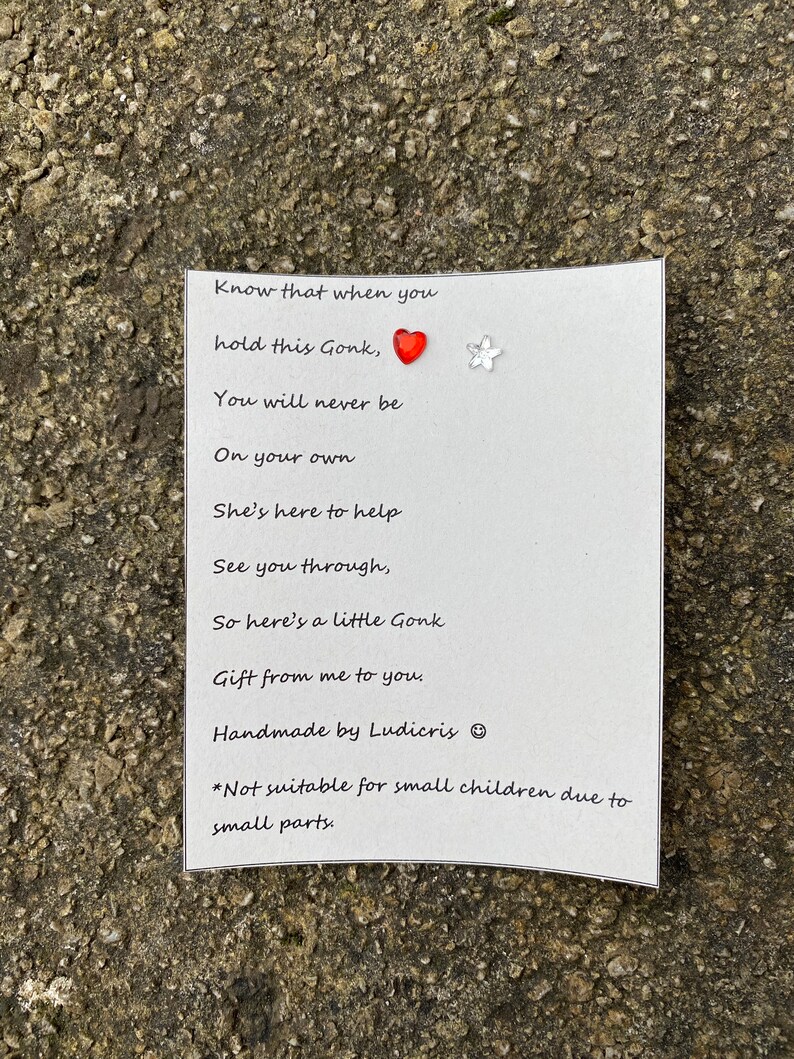 Know that when you
hold this Gonk,
You will never be
On your own
She's here to help
See you through,
So here's a little Gonk
Gift from me to you.
Handmade by Ludicris ☺
*Not suitable for small children due to
small parts.